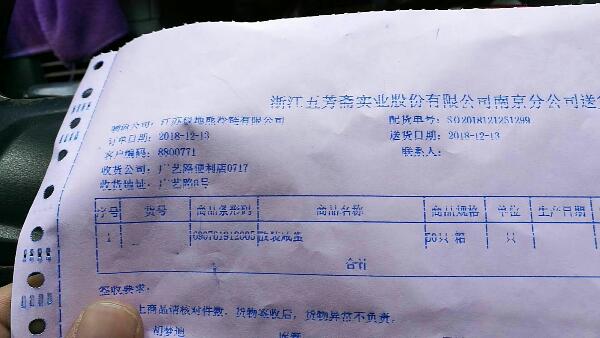 浙江五芳斋实业股份有限公司南京分公司送
物流公司: 江苏绿地能冷链有限公司
配货单号: SO2018121251299
订单日期: 2018-12-13
送货日期: 2018-12-13
客户编码: 8800771
联系人:
收货公司: 广艺路便利店0717
收货地址: 广艺路8号
序号 货号 商品条形码 商品名称 商品规格 单位 生产日期
1 690761912005 散装咸蛋 50只 箱 只
合计
签收要求:
上商品请核对件数. 货物签收后, 货物异常不负责.
胡梦迪